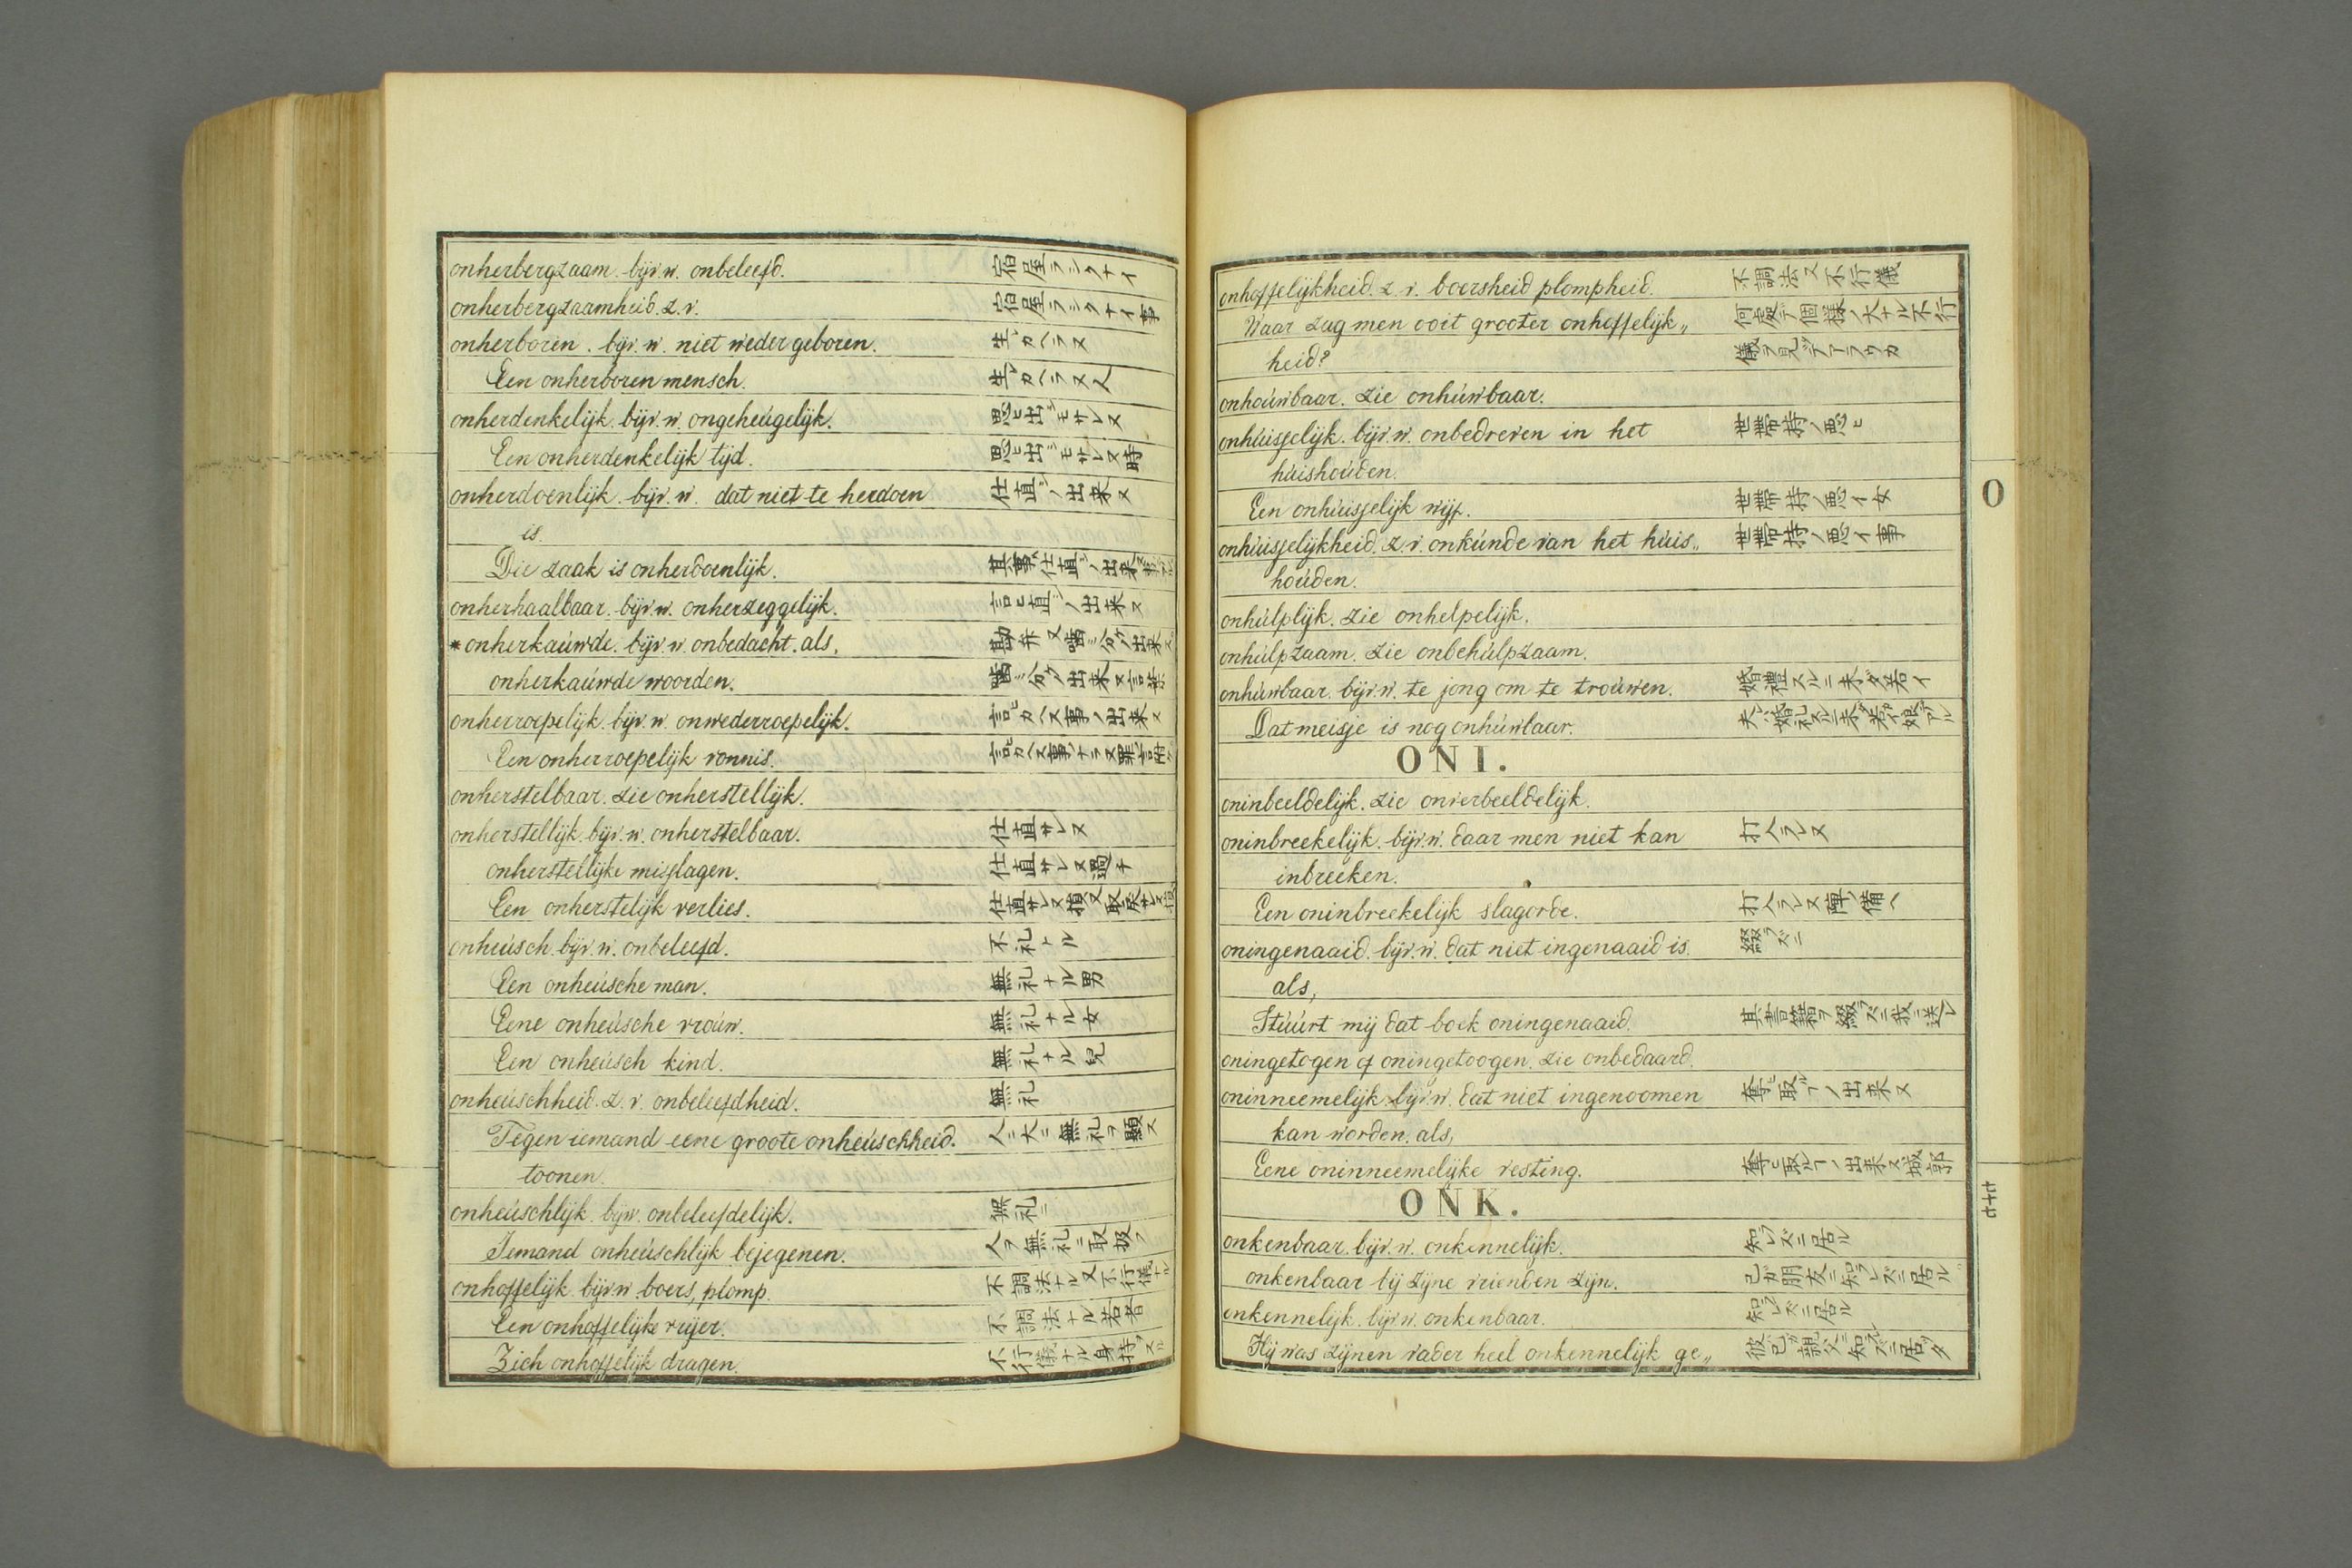 onherbergzaam. bijv. w. onbeleefd. 宿屋ラシクナイ
onherbergzaamheid. z. v. 宿屋ラシクナイ事
onherboren. bijv. w. niet weder geboren. 生レカヘラヌ
Een onherboren mensch. 生レカヘラヌ人
onherdenkelijk. bijv. w. ongeheúgelijk. 思ヒ出シモサレヌ
Een onherdenkelijk tijd. 思ヒ出シモサレヌ時
onherdoenlijk. bijv. w. dat niet te herdoen 仕直シノ出来ヌ
is.
Die zaak is onherdoenlijk. 其事ハ仕直シノ出来ヌ事デアル
onherhaalbaar. bijv. w. onherzeggelijk. 言ヒ直シノ出来ヌ
* onherkaúwde. bijv. w. onbedacht. als, 勘弁又噛ミ分ケ出来ヌ
onherkaúwde woorden. 噛ミ分ケノ出来ヌ言葉
onherroepelijk. bijv. w. onwederroepelijk. 言ヒカヘス事ノ出来ヌ
Een onherroepelijk vonnis. 言ヒカヘス事ノナラヌ罪言付ケ
onherstelbaar. zie onherstellijk.
onherstellijk. bijv. w. onherstelbaar. 仕直サレヌ
onherstellijke misslagen. 仕直サレヌ過チ
Een onherstelijk verlies. 仕直サレヌ損又取戻サレヌ損
onheúsch. bijv. w. onbeleefd. 不礼ナル
Een onheúsche man. 無礼ナル男
Eene onheúsche vroúw. 無礼ナル女
Een onheúsch kind. 無礼ナル兒
onheúschheid. z. v. onbeleefdheid. 無礼
Tegen iemand eene groote onheúschheid. 人ニ大ニ無礼ヲ顕ス
toonen.
onheúschlijk. bijw. onbeleefdelijk. 無礼ニ
Iemand onheúschlijk bejegenen. 人ヲ無礼ニ取扱フ
onhoffelijk. bijv. w. boers, plomp. 不調法ナル又不行儀ナル
Een onhoffelijke vrijer. 不調法ナル若者
Zich onhoffelijk dragen. 不行儀ナル身持ヲスル
onhoffelijkheid. z. v. boersheid plompheid. 不調法又不行儀
Waar zag men ooit grooter onhoffelijk„ 何處デ個様ノ大ナル不行
heid? 儀ヲ見タデアラウカ
onhoúwbaar. zie onhúwbaar.
onhúisselijk. bijv. w. onbedreven in het 世帯持ノ悪ヒ
húishoúden.
Een onhúisselijk wijf. 世帯持ノ悪イ女
onhúisselijkheid. z. v. onkúnde van het húis„ 世帯持ノ悪イ事
hoúden.
onhúlplijk. zie onhelpelijk.
onhúlpzaam. zie onbehúlpzaam.
onhúwbaar. bijv. w. te jong om te troúwen. 婚禮スルニ未ダ若イ
Dat meisje is nog onhúwbaar. 夫ハ婚礼スルニ未ダ若イ娘デアル
O N I.
oninbeeldelijk. zie onverbeeldelijk.
oninbreekelijk. bijv. w. daar men niet kan 打入ラレヌ
inbreeken.
Een oninbreekelijk slagorde. 打入ラレヌ陣ノ備ヘ
oningenaaid. bijv. w. dat niet ingenaaid is. 綴ラズニ
als,
Stúúrt mij dat boek oningenaaid. 其書籍ヲ綴ラズニ我ニ送レ
oningetogen of oningetoogen. zie onbedaard.
oninneemelijk. bijv. w. dat niet ingenoomen 奪ヒ取ル事ノ出来ヌ
kan worden. als,
Eene oninneemelijke vesting. 奪ヒ取ル事ノ出来ヌ城郭
O N K.
onkenbaar. bijv. w. onkennelijk. 知レズニ居ル
onkenbaar bij zijne vrienden zijn. 己ガ朋友ニ知レズニ居ル
onkennelijk. bijv. w. onkenbaar. 知レズニ居ル
Hij was zijnen vader heel onkennelijk ge„ 彼ハ己ガ親父ニ知レズニ居ツタ
O